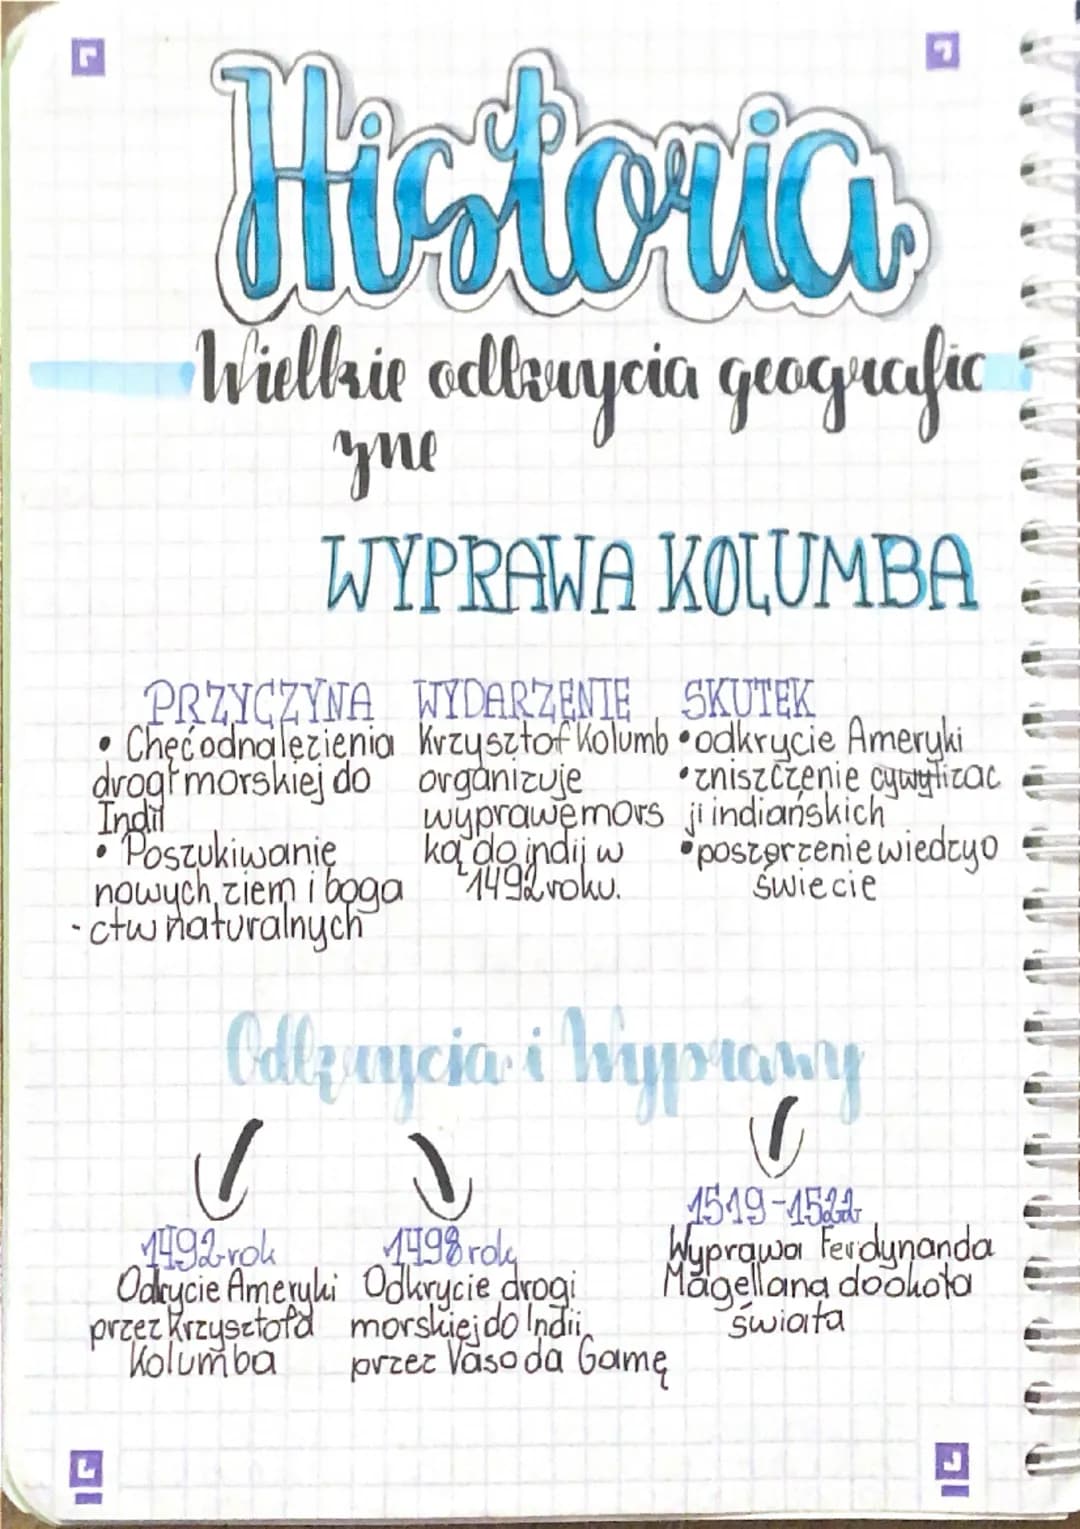 Historia
Wielkie odkrycia geografic
zne
WYPRAWA KOLUMBA
PRZYCZYNA
• Chęć odnalezienia
drogi morskiej do
Indii
• Poszukiwanie
nowych ziem i boga
- ctw naturalnych
WYDARZENIE
Krzysztof Kolumb
organizuje
wyprawę mors
ką do indij w
1492 roku.
SKUTEK
• odkrycie Ameryki
• zniszczenie cywylizac
ji indiańskich
• poszerzenie wiedzy o
świecie
Odkrycia i Wyprawy
1492 rok
Odkrycie Ameryki
przez Krzysztofa
Kolumba
1498 rok
Odkrycie drogi
morskiej do Indii
przez Vaso da Gamę
1519-1522
Wyprawa Ferdynanda
Magellana dookoła
świata